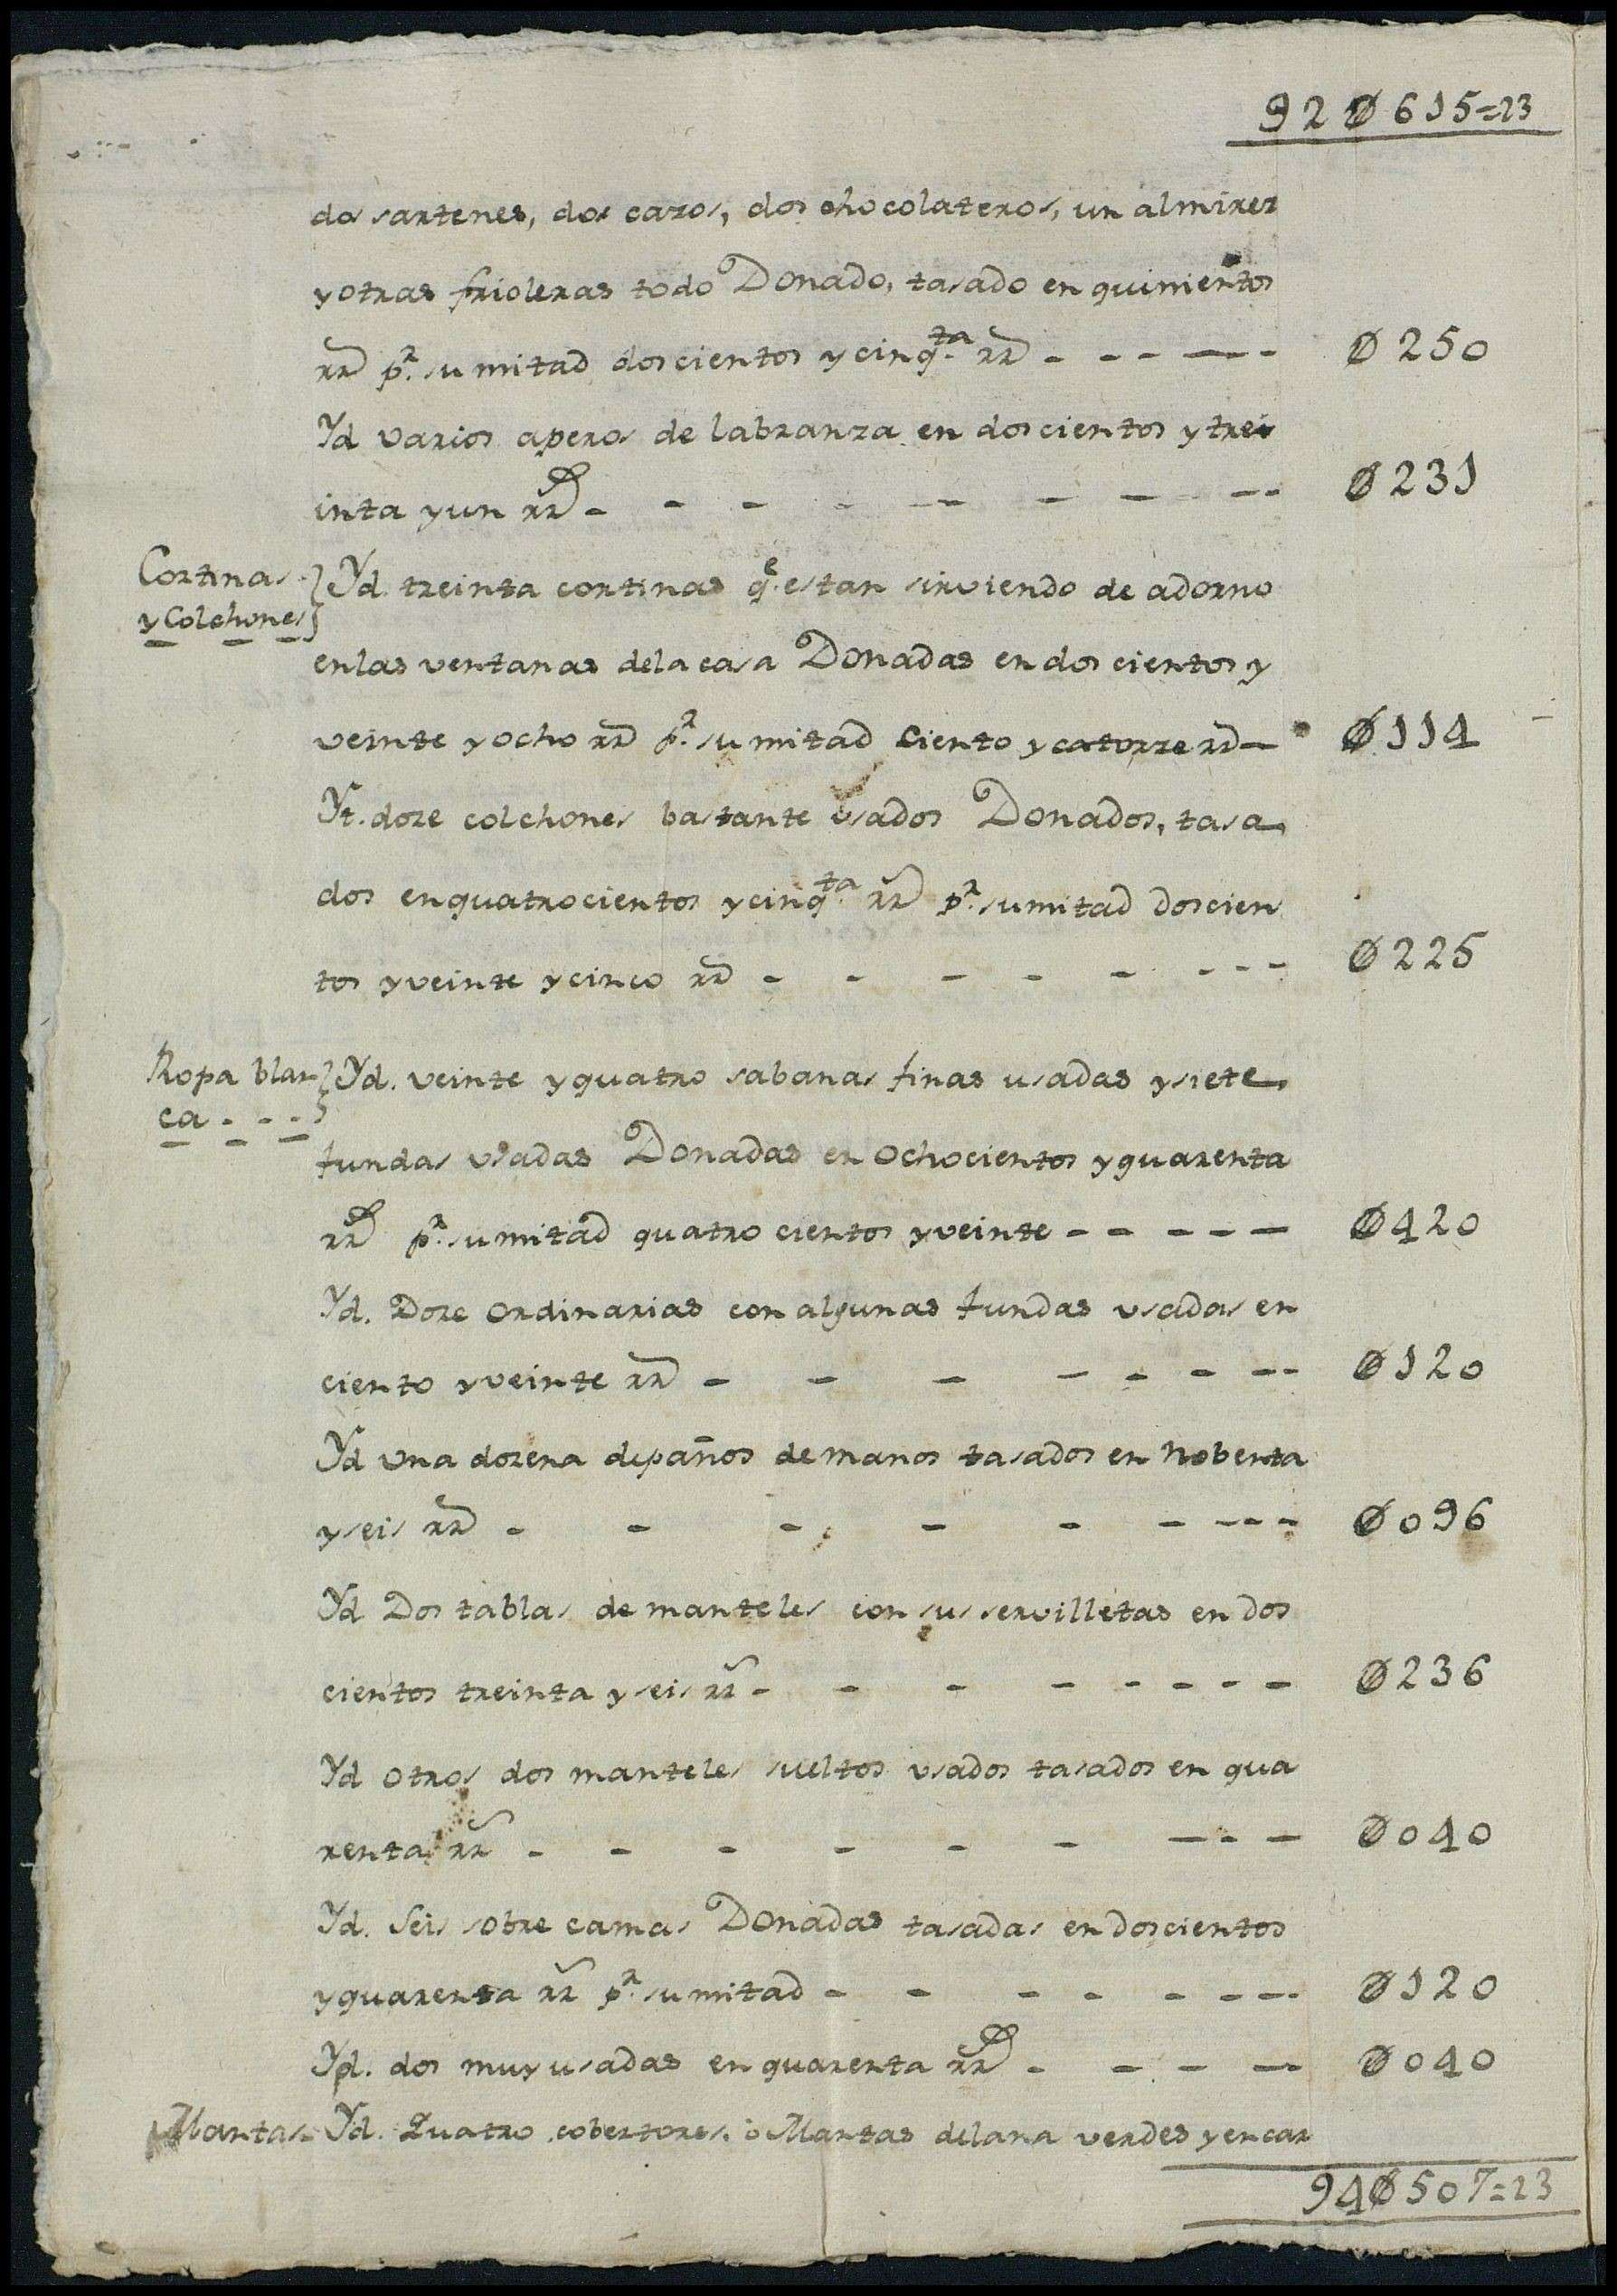 92Ø615=23
dos sartenes, dos cazos, dos chocolateros, un almirez
y otras frioleras todo Donado, tasado en quinientos
rr̃ p.r su mitad doscientos y cinq.ta rr̃ - - - - - - Ø250
Yd varios aperos de labranza en doscientos y trei
inta y un rr̃ - - - - - - - - - Ø231
Cortinas y Colchones
Yd. treinta cortinas q.e estan sirviendo de adorno
en las ventanas de la casa Donadas en doscientos y
veinte y ocho rr̃ p.r su mitad Ciento y catorze rr̃ - Ø114
Yt. doze colchones bastante usados Donados, tasa
dos en quatrocientos y cinq.ta rr̃ p.r su mitad doscien
tos y veinte y cinco rr̃ - - - - - - - - Ø225
Ropa blan
ca - - -
Yd. veinte y quatro sabanas finas usadas y siete
fundas usadas Donadas en ochocientos y quarenta
rr̃ p.r su mitad quatrocientos y veinte - - - - - Ø420
Yd. Doze ordinarias con algunas fundas usadas en
ciento y veinte rr̃ - - - - - - - - Ø120
Yd una dozena de paños de manos tasados en Nobenta
y seis rr̃ - - - - - - - - - Ø096
Yd Dos tablas de manteles con sus servilletas en dos
cientos treinta y seis rr̃ - - - - - - - - Ø236
Yd otros dos manteles sueltos usados tasados en qua
renta rr̃ - - - - - - - - - Ø040
Yd. Seis sobre camas Donadas tasadas en doscientos
y quarenta rr̃ p.r su mitad - - - - - - - - Ø120
Yd. dos muy usadas en quarenta rr̃ - - - - Ø040
Mantas. Yd. Quatro cobertores, o Mantas de lana verdes y encar
94Ø507=23